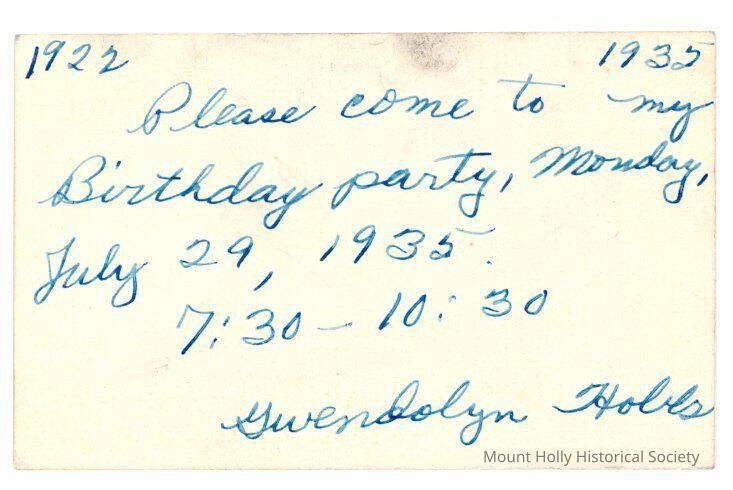 1922 1935
Please come to my
Birthday party, Monday,
July 29, 1935.
7:30 – 10:30
Gwendolyn Hobbs
Mount Holly Historical Society